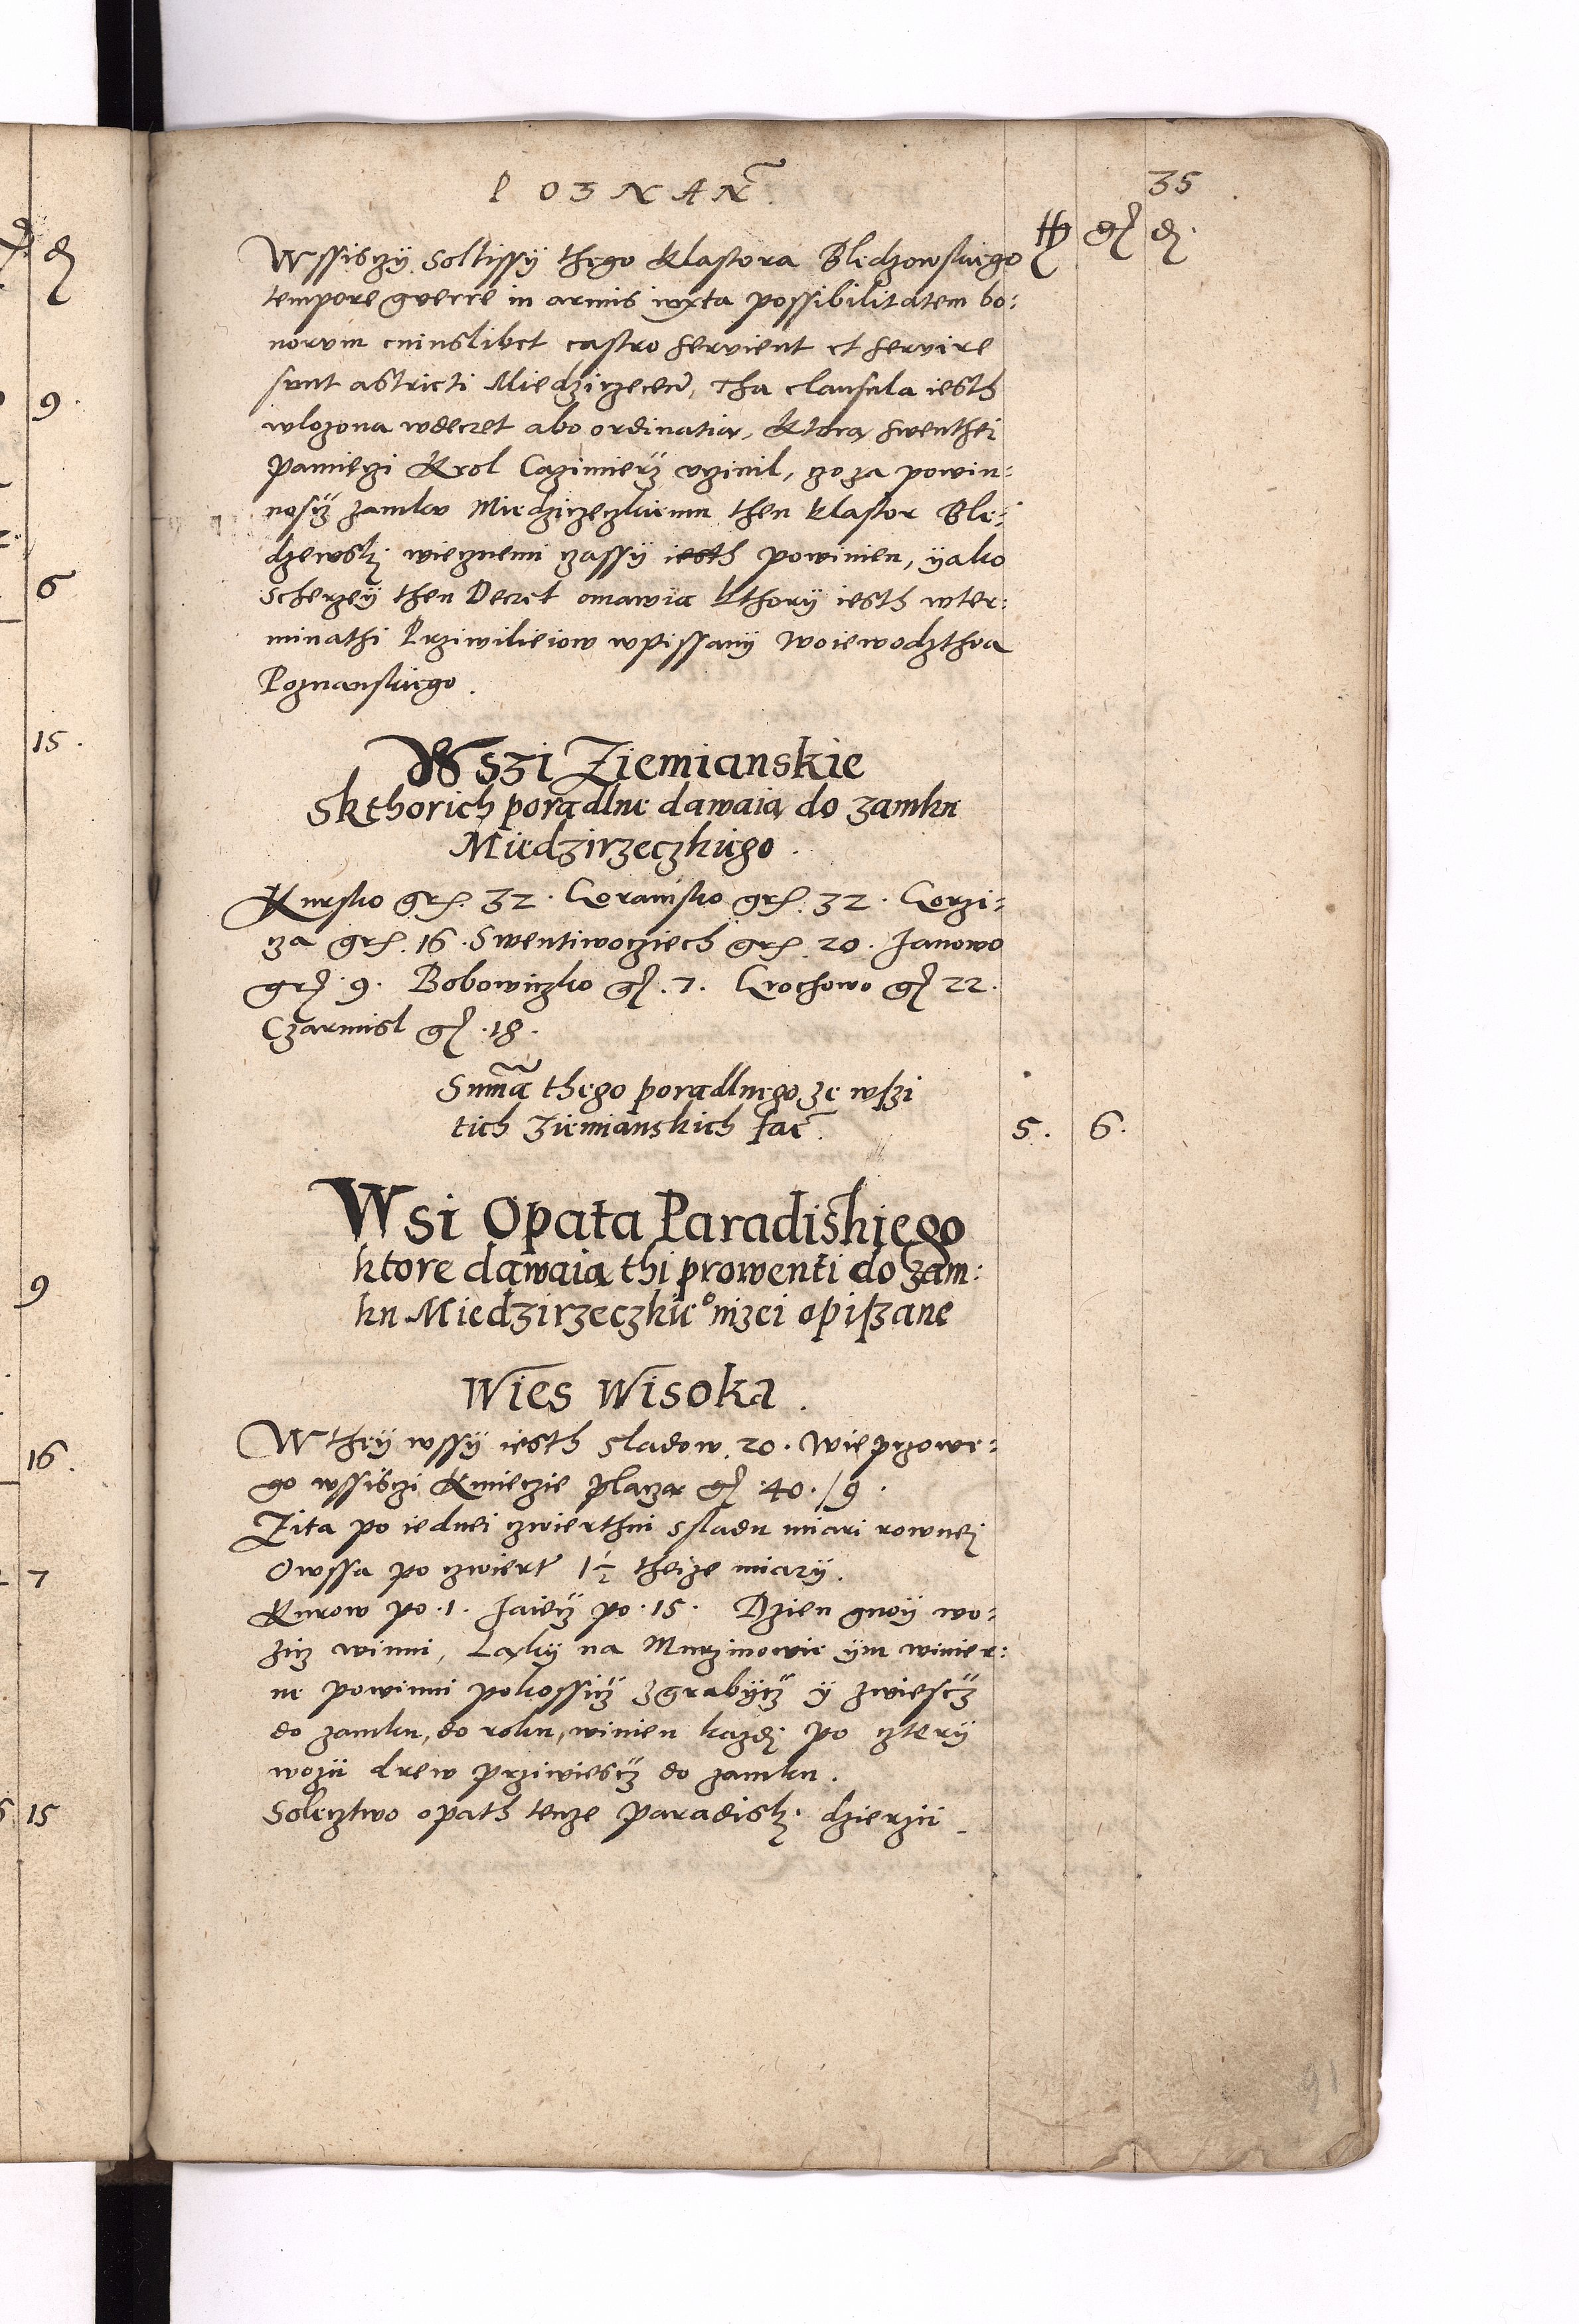 POZNAN̄.
35
Wssisczÿ Soltissÿ thego klastora Bledzowskiego
tempore gverre in armis iuxta possibilitatem bo:
norvm cuiuslibet castro servient et servire
sunt astricti Miedzirzecen̄, Tha clausula iesth
wlozona wdecret abo ordinatią, Ktorą swenthei
pamięczi Krol Cazimierz vczinil, czo za powin:
nosz zamkv Miedzirzeczkiemu then klastor Ble:
dzewsk. wiecznemi czassÿ iesth powinien, ÿako
Scherzeÿ then Decret omawia kthorÿ iesth wter:
minathi Prziwilieiow wpissanÿ woiewodzthva
Poznanskiego.
Wszi Ziemianskie
Skthorich poradlne dawaią do zamku
Miedzirzeczkiego.
Kursko gr. 32. Goranisko gr. 32. Gorzi:
cza gr. 16. Swentiwocziech gr. 20. Janowo
gr. 9. Bobowiczko g. 7. Grochowo g 22.
Czarmisl g. 18.
Suma thego poradlnego ze wszi
tich Ziemianskich fac̄.
5. 6.
Wsi Opata Paradiskiego
ktore dawaią thi prowenti do zam:
ku Miedzirzeczkieo nizei opiszane
Wies Wisoka.
W theÿ wssÿ iesth sladow 20. Wieprzowe:
go wssisczi Kmieczie płaczą g 40. /9.
Zita po iednei czwierthni ssladu miari rownej
Owssa po czwiert 1½ theize miarÿ.
Kurow po .1. Jaiecz po .15. Dzien gnoÿ wo:
zicz winni, Łąkÿ na Murzinowie ÿm winier:
ne powinni pokossicz zgrabÿcz ÿ zwiescz
do zamku, do roku, winien kazdi po czterÿ
wozii drew prziwiescz do zamku.
Solecztwo opath tenze paradisk. dzierzii.
9
6
15.
9
16.
7
15
91